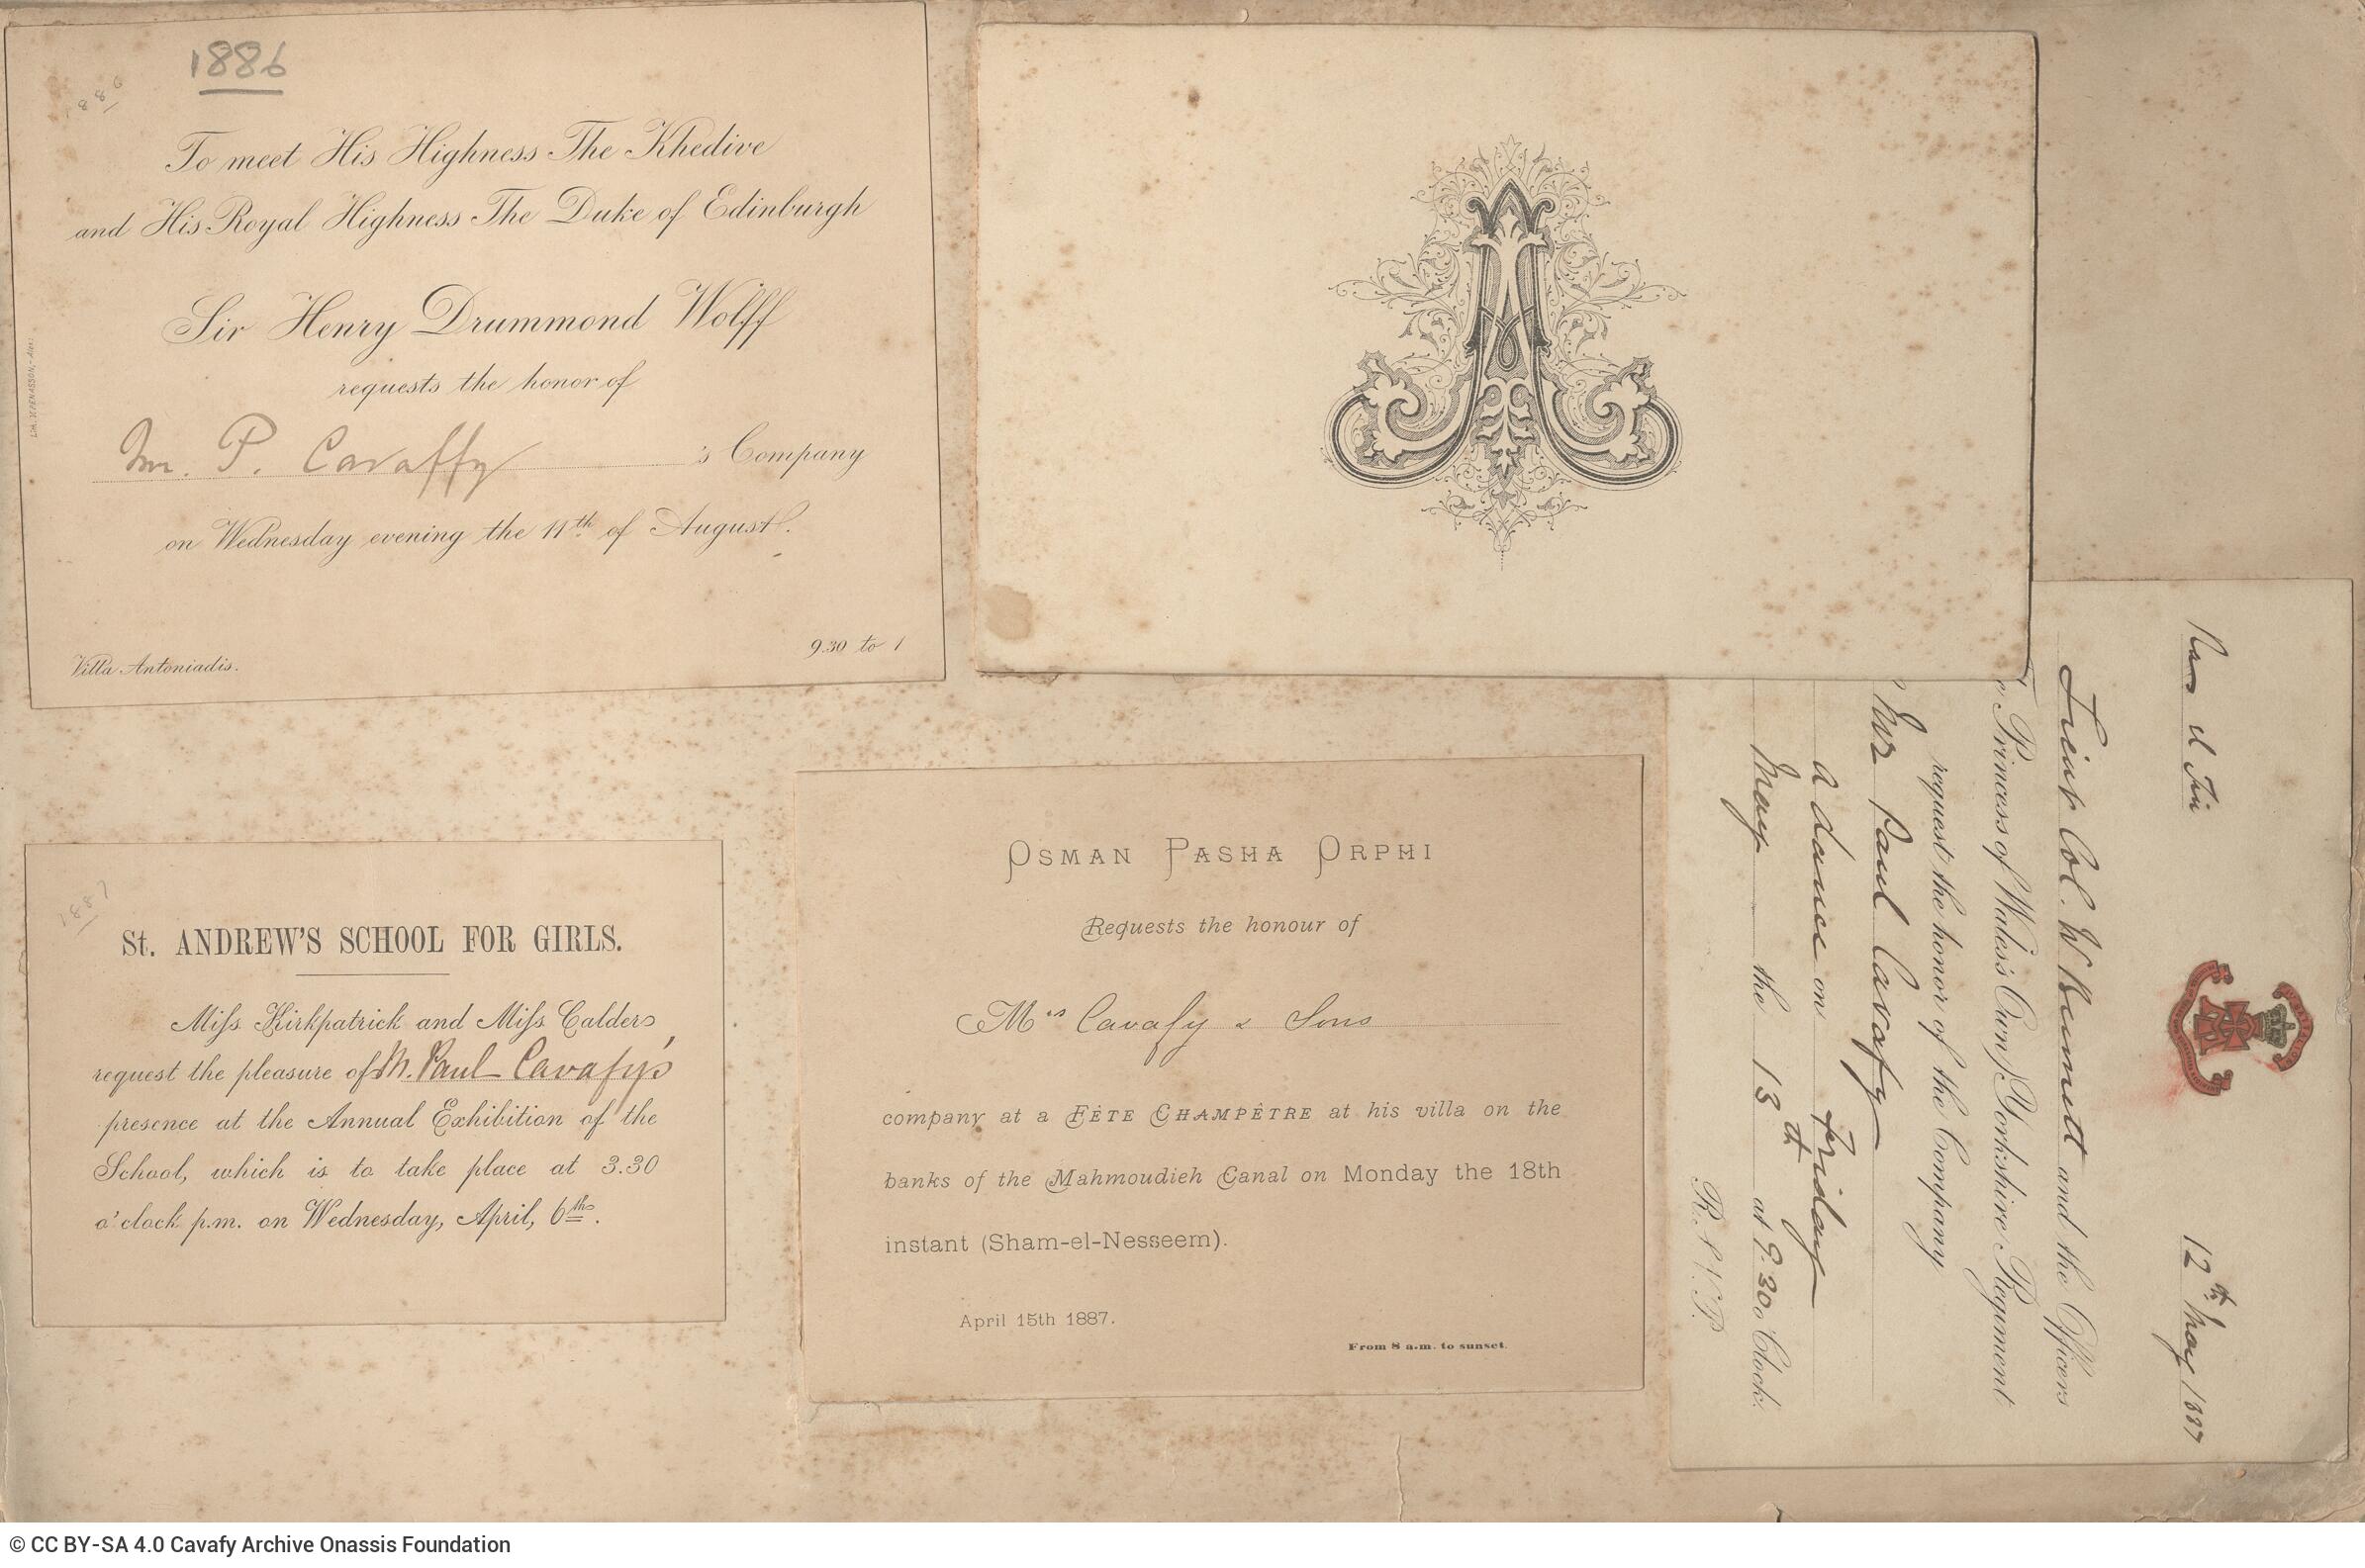 1886
1886
To meet His Highness The Khedive
and His Royal Highness The Duke of Edinburgh
Sir Henry Drummond Wolff
requests the honor of
Mr. P. Cavaffy 's Company
on Wednesday evening the 11th of August.
Villa Antoniadis.
9.30 to 1
1887
St. ANDREW'S SCHOOL FOR GIRLS.
Miss Kirkpatrick and Miss Calder
request the pleasure of M. Paul Cavafy's
presence at the Annual Exhibition of the
School, which is to take place at 3.30
o'clock p.m. on Wednesday, April, 6th.
OSMAN PASHA ORPHI
Requests the honour of
Mrs Cavafy & Sons
company at a FÊTE CHAMPÊTRE at his villa on the
banks of the Mahmoudieh Canal on Monday the 18th
instant (Sham-el-Nesseem).
April 15th 1887.
From 8 a.m. to sunset.
Ras el Tin
12th May 1887
Lieut Col. W Bennett and the Officers
Princess of Wales's Own) Yorkshire Regiment
request the honor of the Company
Mr Paul Cavafy
a dance on Friday
May the 13th at 9.30 o'Clock.
R.S.V.P.
© CC BY-SA 4.0 Cavafy Archive Onassis Foundation